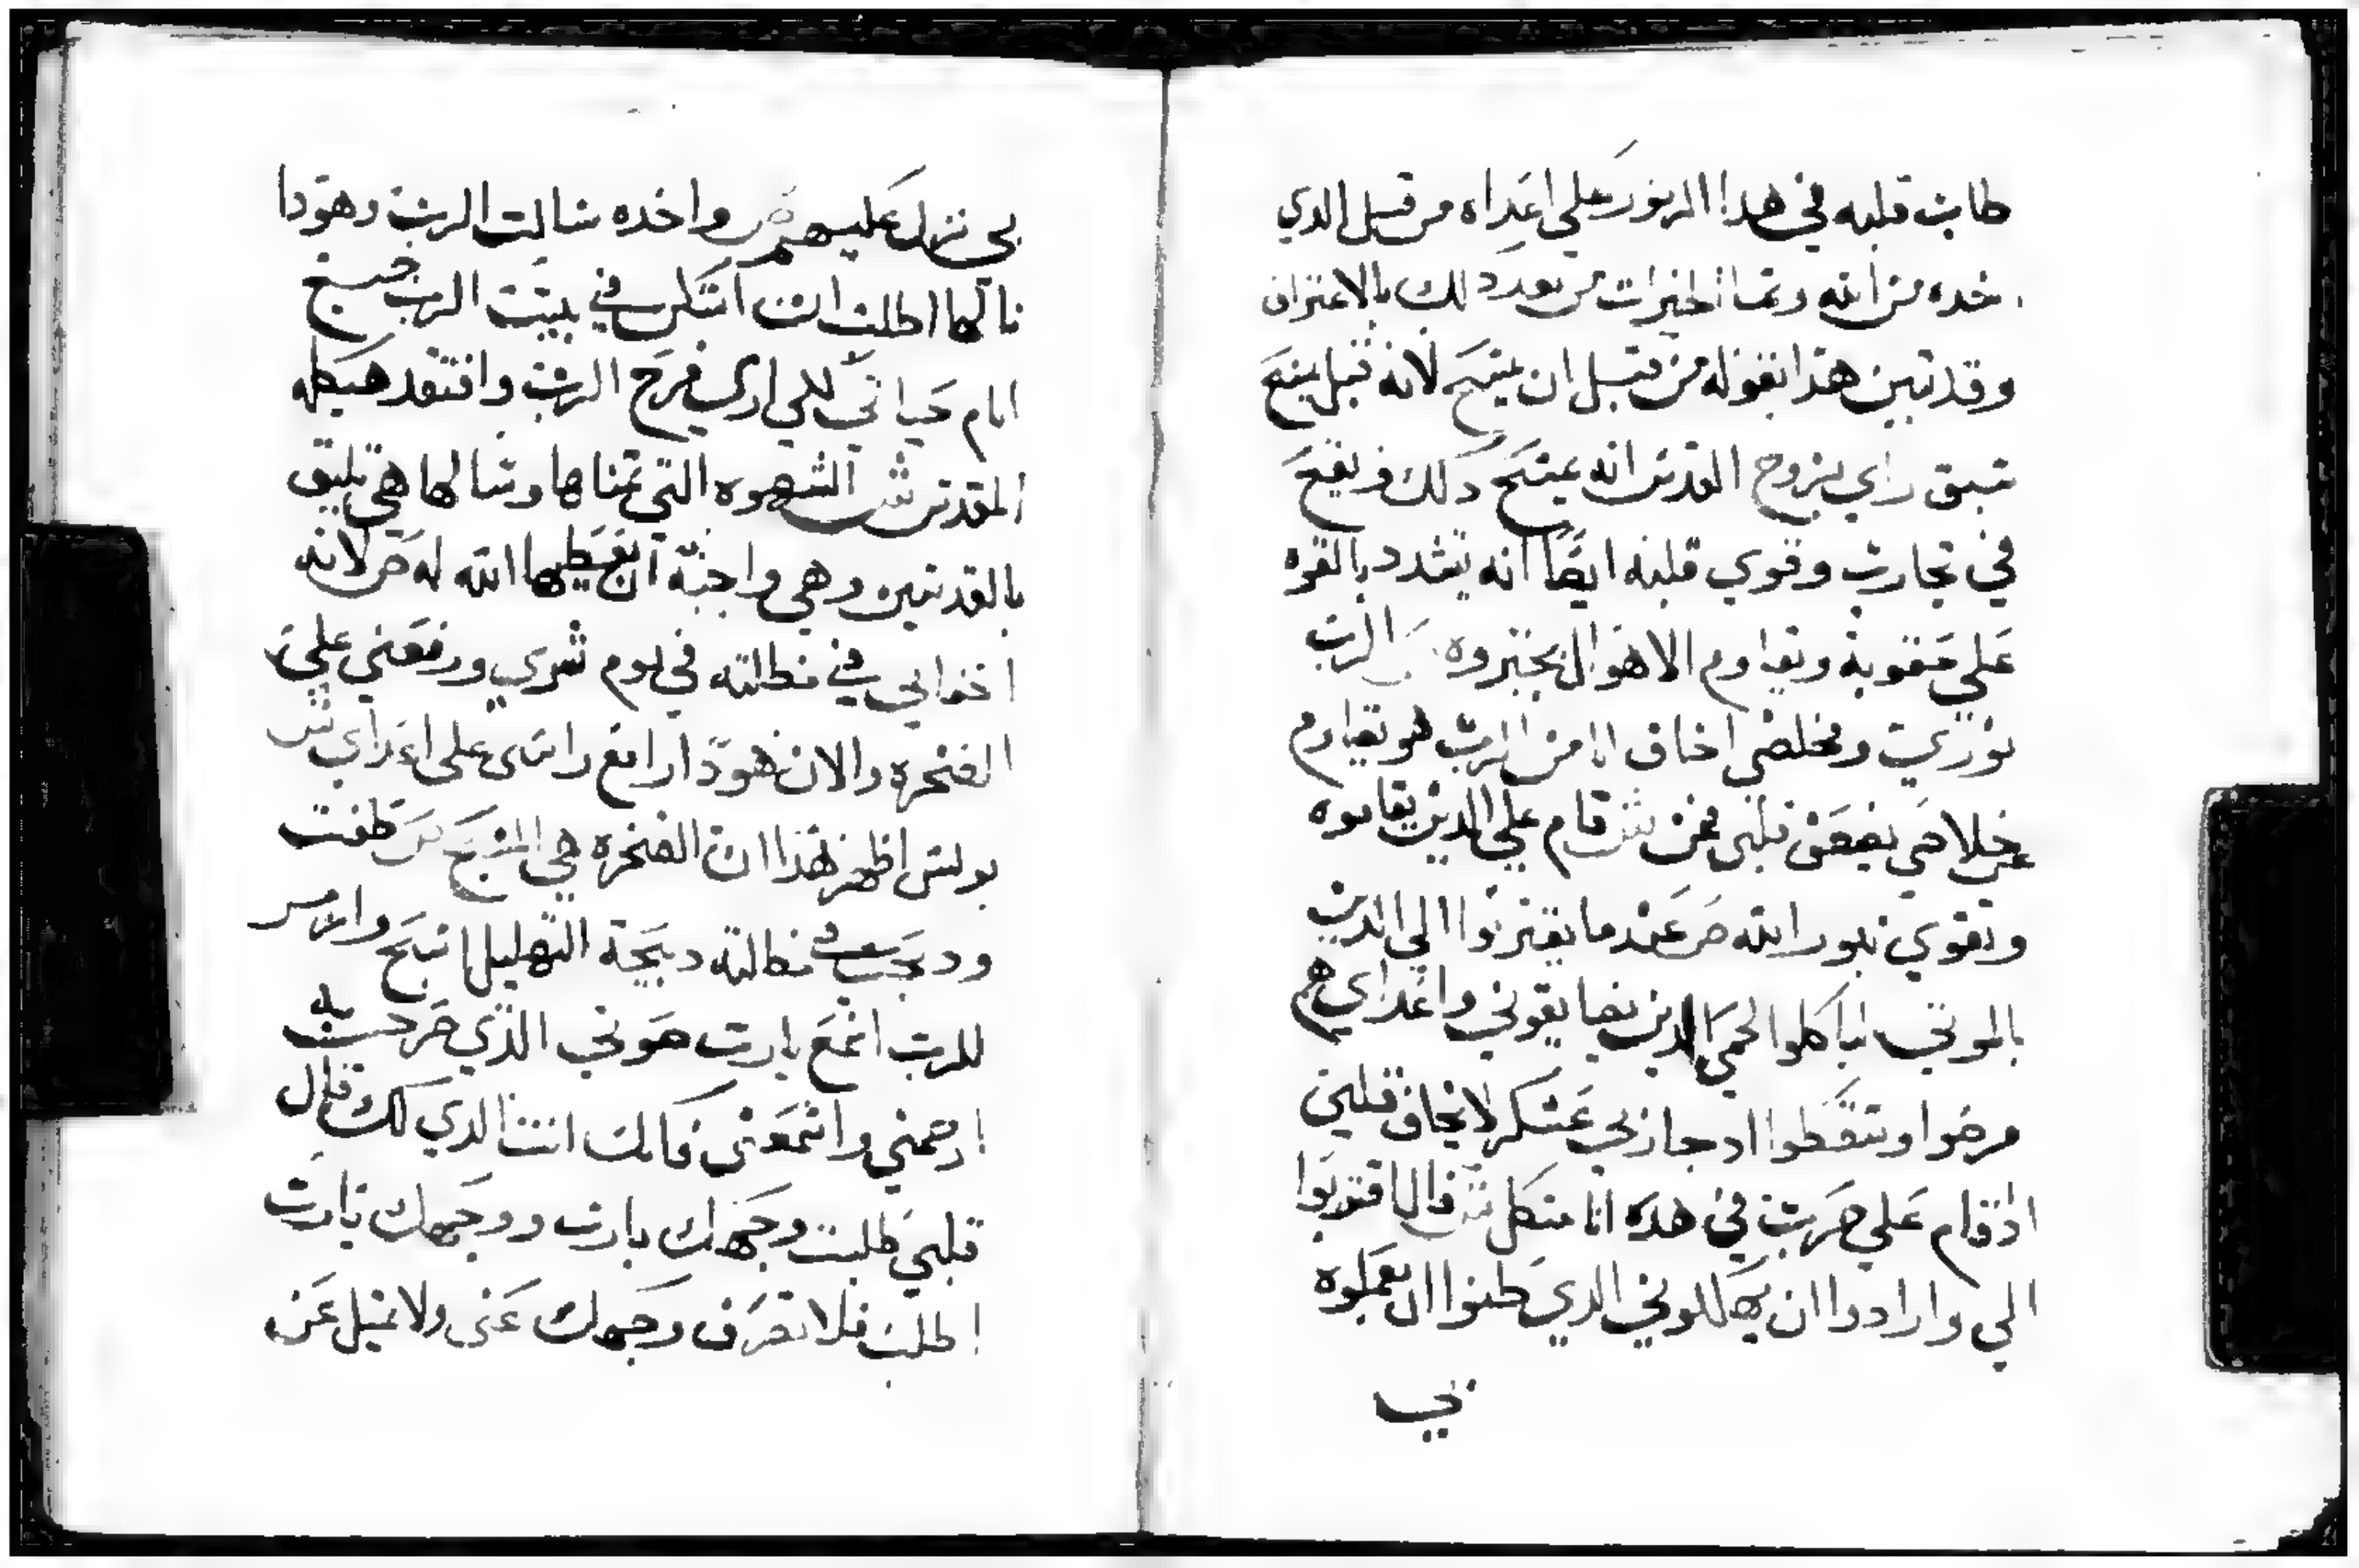 طابت قلبه في هدا المزمور علي اعداه من قبل الدي
خده من الله وتما الخيرات من بعد دلك بالاعتراف
وقد تبين هدا بقوله من قبل ان يمتسح لانه قبل يمتسح
سبق راي بروح القدس انه يمتسح دلك فريقع
في تجارب وقوي قلبه ايضا انه يتشدد بالقوه
علي عقوبة ويقاوم الاهوال بخبروه الرب
نوري ومخلصي اخاف انا من الرب هو يقاوم
خلاصي يفعص قلبي فمن تش قام علي الدين يقاموه
ويقوي بنور الله ص عند ما يقتربوا الي الدين
بالموتي لياكلوا لحمي الدين يضايقوني واعداي هم
مرضوا وسقطوا ادجاز بي عسكر لا يخاف قلبي
اذ قام علي حرب في هده انا متكل تش قال اقتربوا
الي وارادوا ان يهللوني الدي ظنوا ان يعملوه
بي
بي نزل عليهم ص واخده سالت الرب وهودا
نالها اطلب ان اسكن في بيت الرب جميع
ايام حياتي لكي اري فرح الرب وافتقد هيكله
المقدس تش الشهوه التي تمناها وسالها هي تليق
بالقديسين وهي واجبة ان يعطيها الله له ص لانه
اخفاني في مظالته في يوم شري ورفعني علي
الصخره والان هودا رافع راسى علي اعداي تش
بولس اظهر لهذا ان الصخره هي المسيح ص طفت
ودبحت في مظالته دبيحة التهليل اسبح وارمر
للرب اسمع يارب صوتي الذي صرحت به
ارحمني واسمعنى فانك انت الدي لك قال
قلبي طلبت وجهك يارب ووجهك يارب
اطلب فلا تصرف وجهك عنى ولا تميل عن